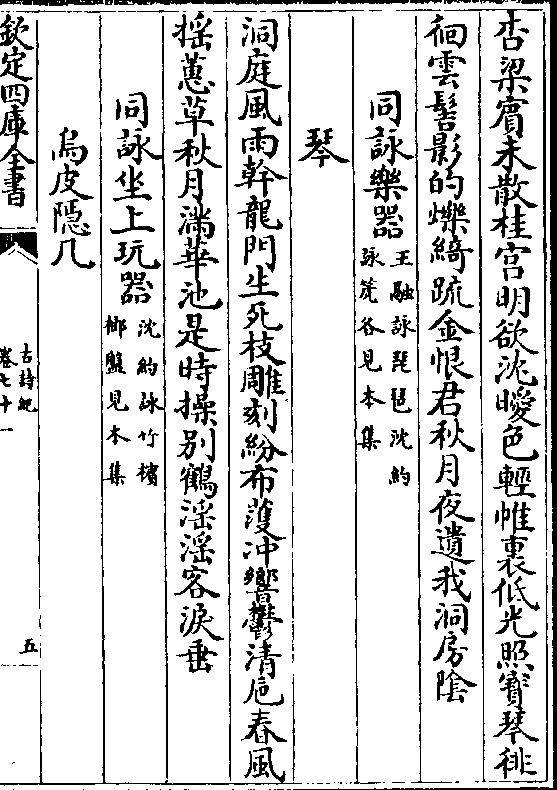 杏梁賓未散桂宫明欲沈曖色輕帷裏低光照寳琴徘
徊雲髻影的爍綺疏金恨君秋月夜遺我洞房隂
同詠樂器
王融詠琵琶沈約
詠篪各見本集
琴
洞庭風雨幹龍門生死枝雕刻紛布濩冲響鬱清巵春風
揺蕙草秋月滿華池是時操别鶴淫淫客淚垂
同詠坐上玩器
沈約詠竹檳
榔盤見本集
烏皮隱几
欽定四庫全書
古詩紀
卷七十一
五